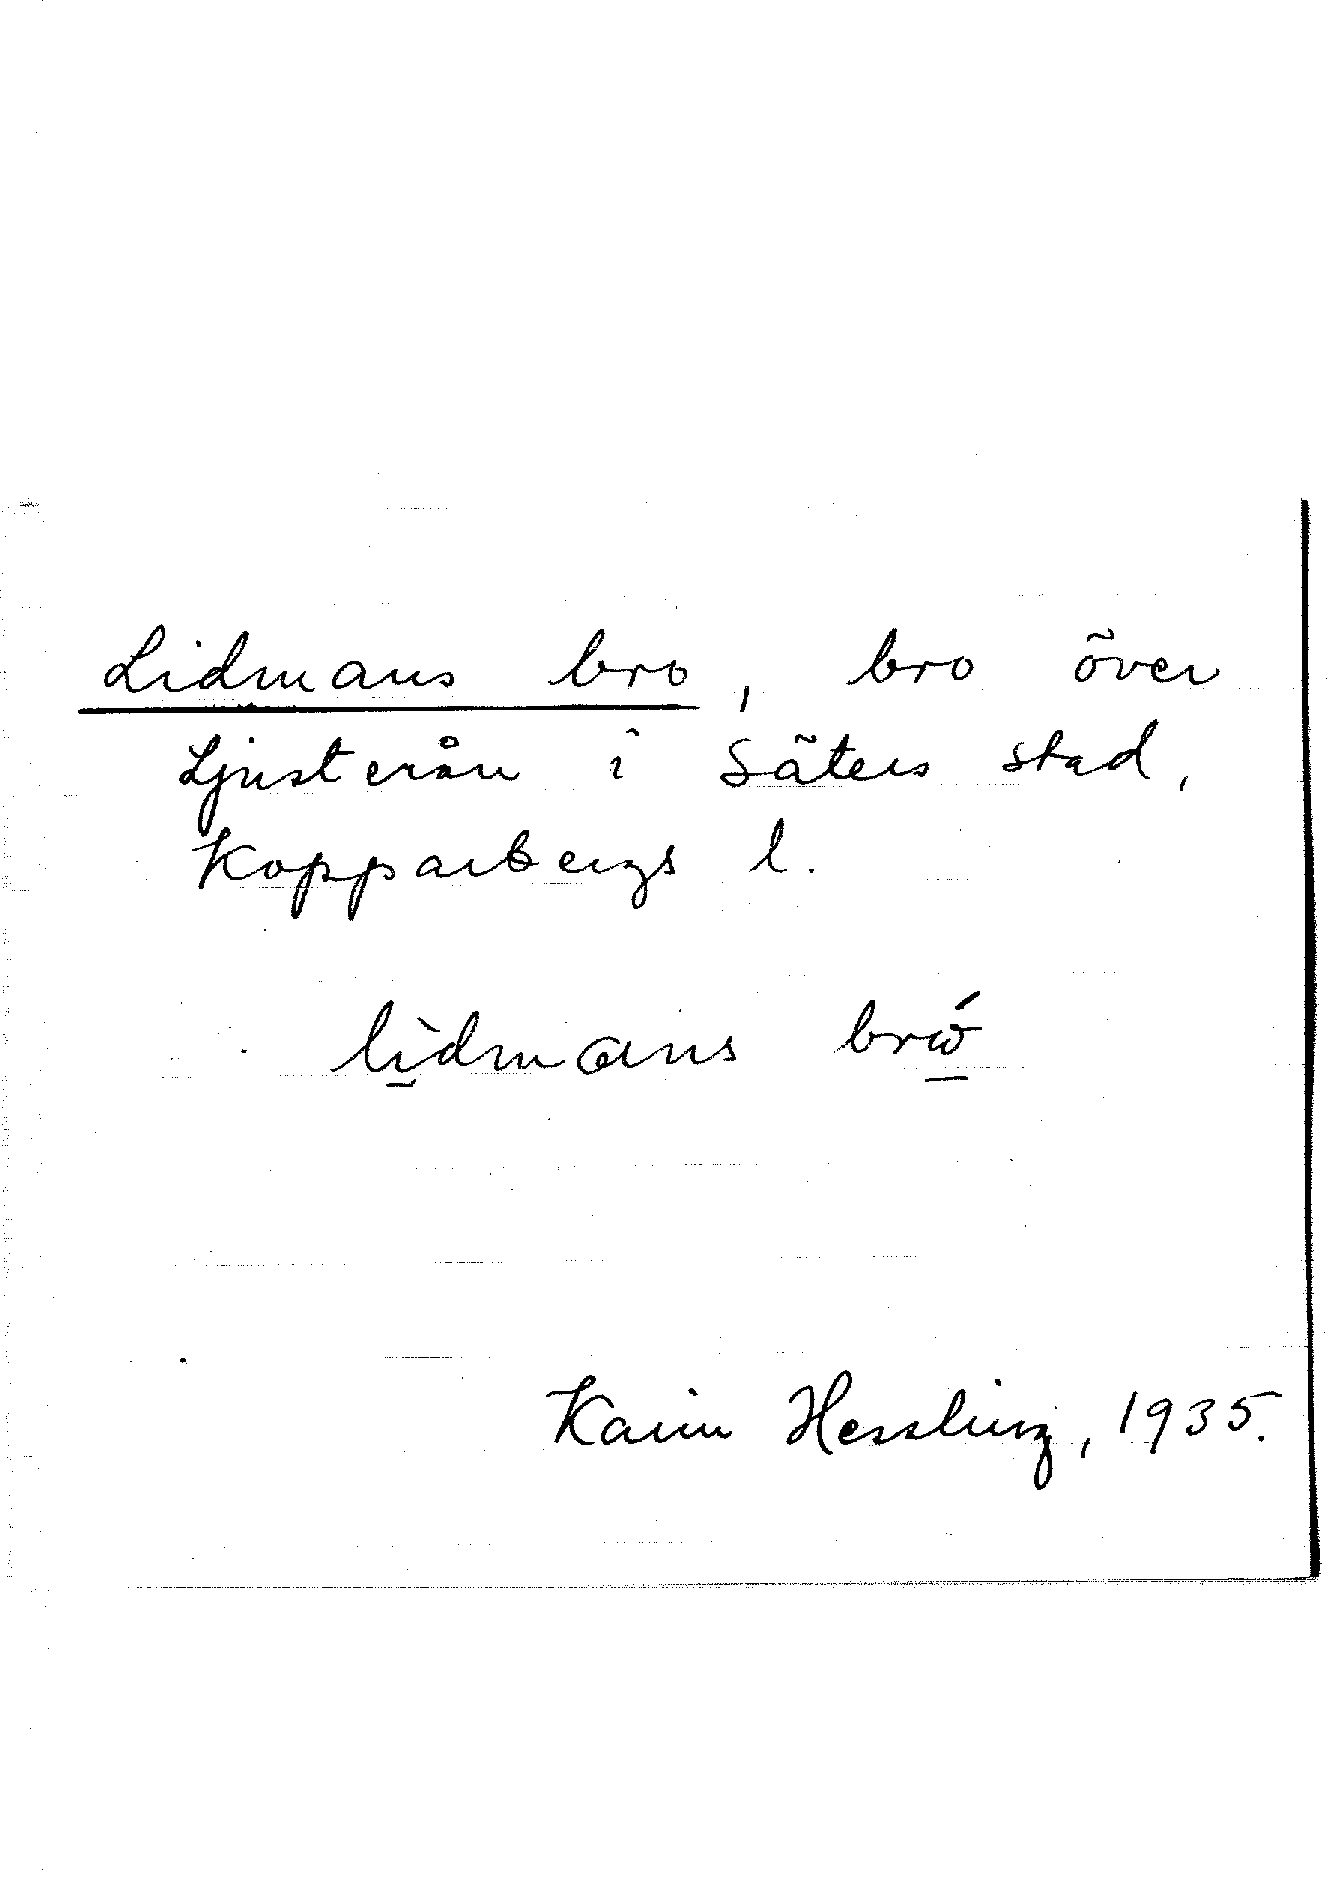 Lidmans bro, bro över
Ljusterån i Säters stad,
Kopparbergs l.
lì̱dmans brώ̱
Karin Hessling, 1935.